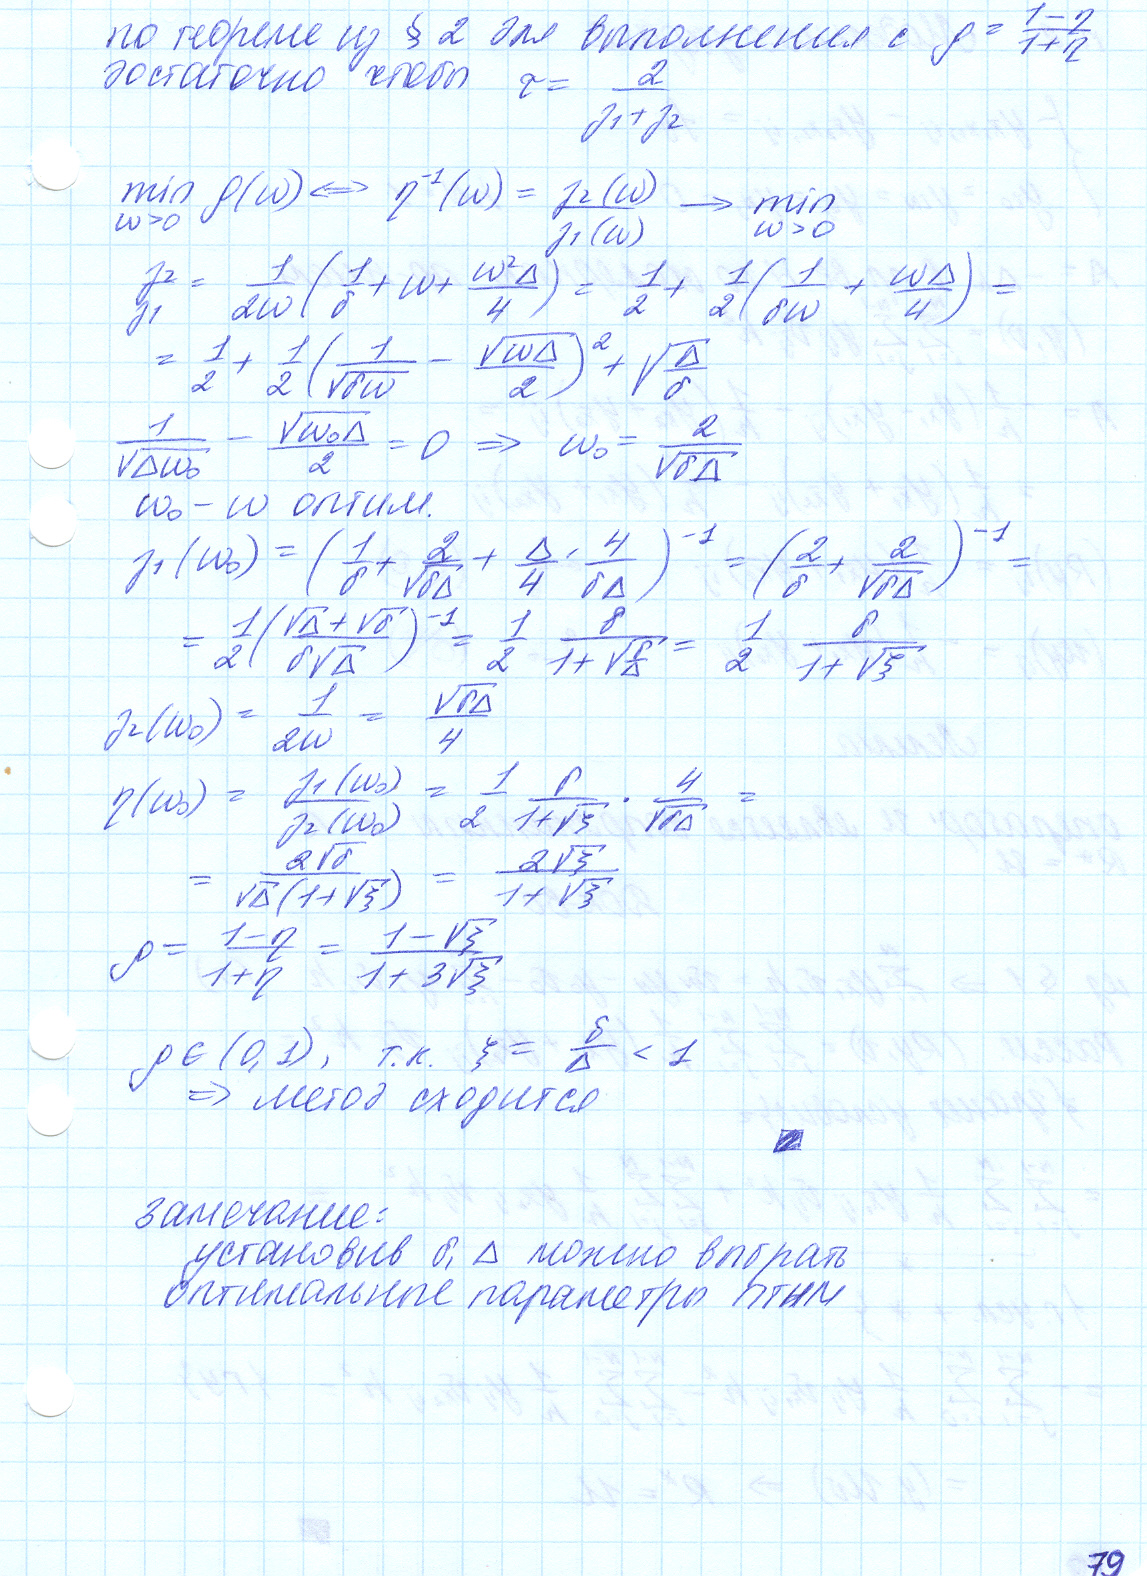 по теореме из § 2 для выполнения с ρ = \frac{1-η}{1+η}
достаточно чтобы τ = \frac{2}{γ_1+γ_2}
\min_{ω>0} ρ(ω) ⟺ η^{-1}(ω) = \frac{γ_2(ω)}{γ_1(ω)} → \min_{ω>0}
\frac{γ_2}{γ_1} = \frac{1}{2ω}(\frac{1}{δ} + ω + \frac{ω^2Δ}{4}) = \frac{1}{2} + \frac{1}{2}(\frac{1}{δω} + \frac{ωΔ}{4}) =
= \frac{1}{2} + \frac{1}{2}(\frac{1}{\sqrt{δω}} - \frac{\sqrt{ωΔ}}{2})^2 + \sqrt{\frac{Δ}{δ}}
\frac{1}{\sqrt{Δω_0}} - \frac{\sqrt{ω_0Δ}}{2} = 0 ⇒ ω_0 = \frac{2}{\sqrt{δΔ}}
ω_0 – ω оптим.
γ_1(ω_0) = (\frac{1}{δ} + \frac{2}{\sqrt{δΔ}} + \frac{Δ}{4} · \frac{4}{δΔ})^{-1} = (\frac{2}{δ} + \frac{2}{\sqrt{δΔ}})^{-1} =
= \frac{1}{2}(\frac{\sqrt{Δ}+\sqrt{δ}}{δ\sqrt{Δ}})^{-1} = \frac{1}{2} \frac{δ}{1+\sqrt{\frac{δ}{Δ}}} = \frac{1}{2} \frac{δ}{1+\sqrt{ξ}}
γ_2(ω_0) = \frac{1}{2ω} = \frac{\sqrt{δΔ}}{4}
η(ω_0) = \frac{γ_1(ω_0)}{γ_2(ω_0)} = \frac{1}{2} \frac{δ}{1+\sqrt{ξ}} · \frac{4}{\sqrt{δΔ}} =
= \frac{2\sqrt{δ}}{\sqrt{Δ}(1+\sqrt{ξ})} = \frac{2\sqrt{ξ}}{1+\sqrt{ξ}}
ρ = \frac{1-η}{1+η} = \frac{1-\sqrt{ξ}}{1+3\sqrt{ξ}}
ρ ∈ (0,1), т.к. ξ = \frac{δ}{Δ} < 1
⇒ метод сходится
замечание:
установив δ, Δ можно выбрать
оптимальные параметры ПТИМ
79